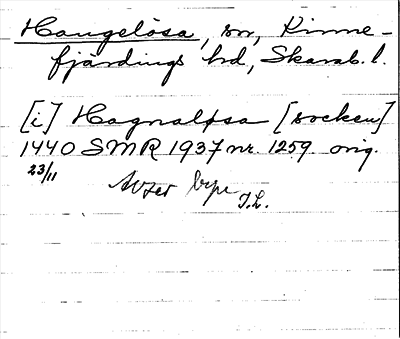 Hangelösa, sn, Kinne-
fjärdings hd, Skarab. l.
[i] Hagnaløsa [socken]
1440 SMR 1937 nr. 1259. orig.
23/11
Avser byn
T.L.